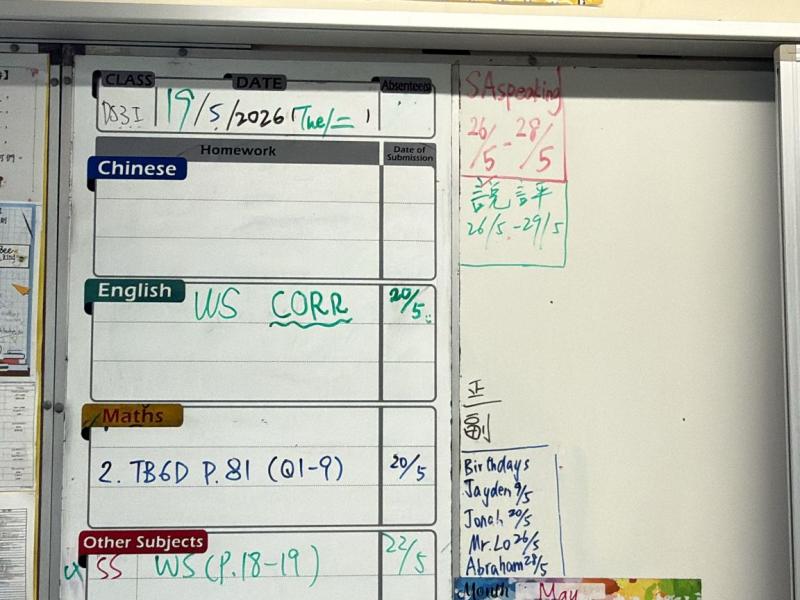 CLASS DATE Absentees
19/5/2026 (Tue)
Homework Date of Submission
Chinese
English
WS CORR 20/5
Maths
2. TB6D P.81 (Q1-9) 20/5
Other Subjects
SS WS (P.18-19) 22/5
SA speaking
26/5 - 28/5
説評
26/5 - 29/5
正
副
Birthdays
Jayden 9/5
Jonah 20/5
Mr. Lo 26/5
Abraham 28/5
Month May